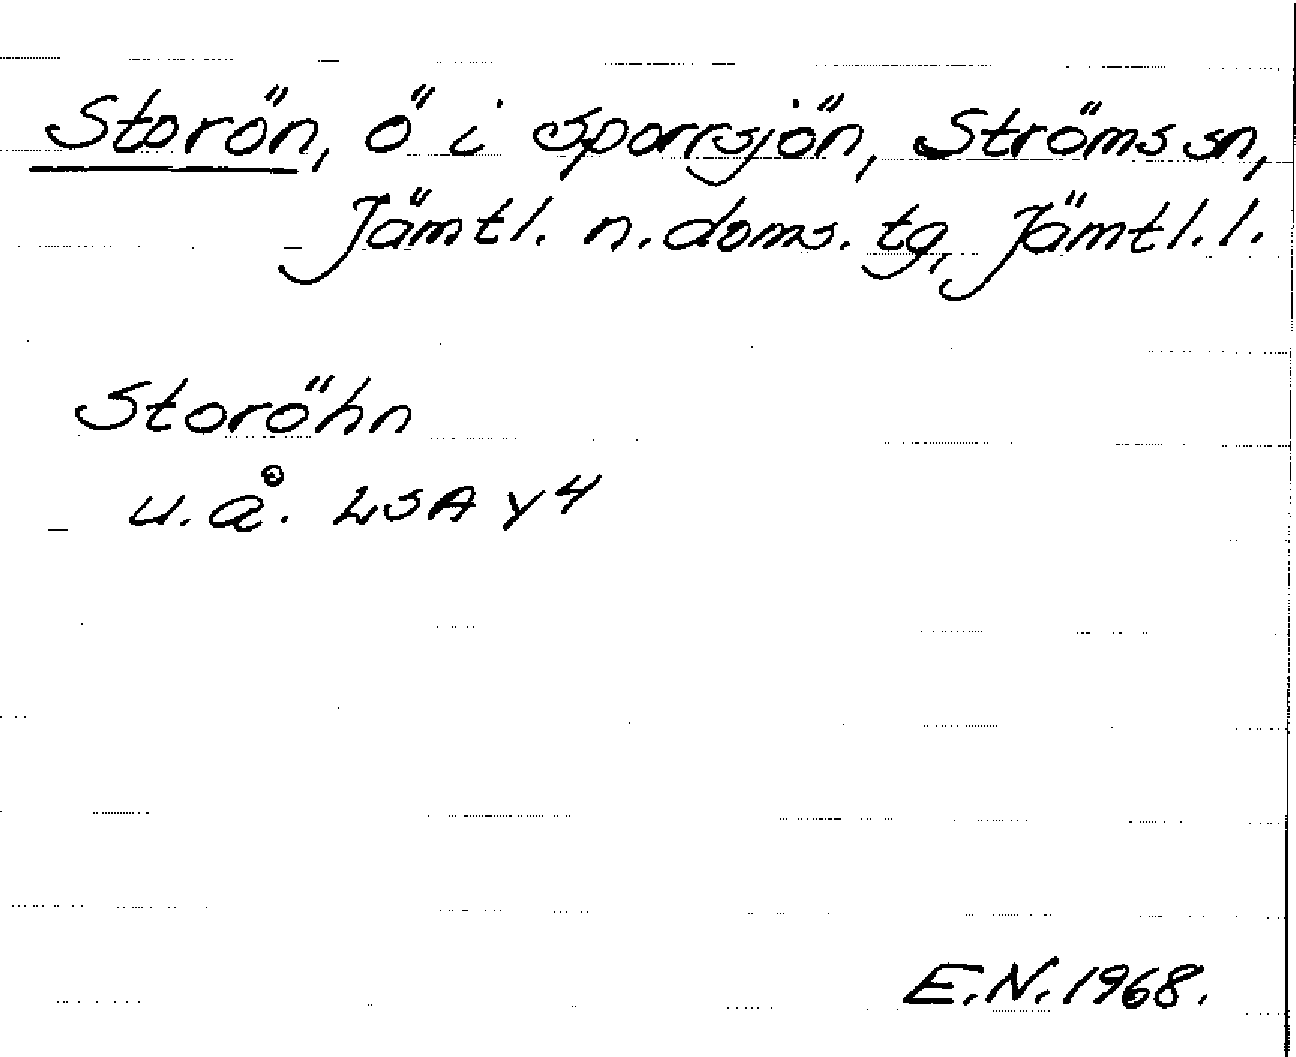 Storön, ö i Sporrsjön, Ströms sn,
Jämtl. n. doms. tg, Jämtl. l.
Storöhn
u. å. LSA Y4
E.N. 1968.